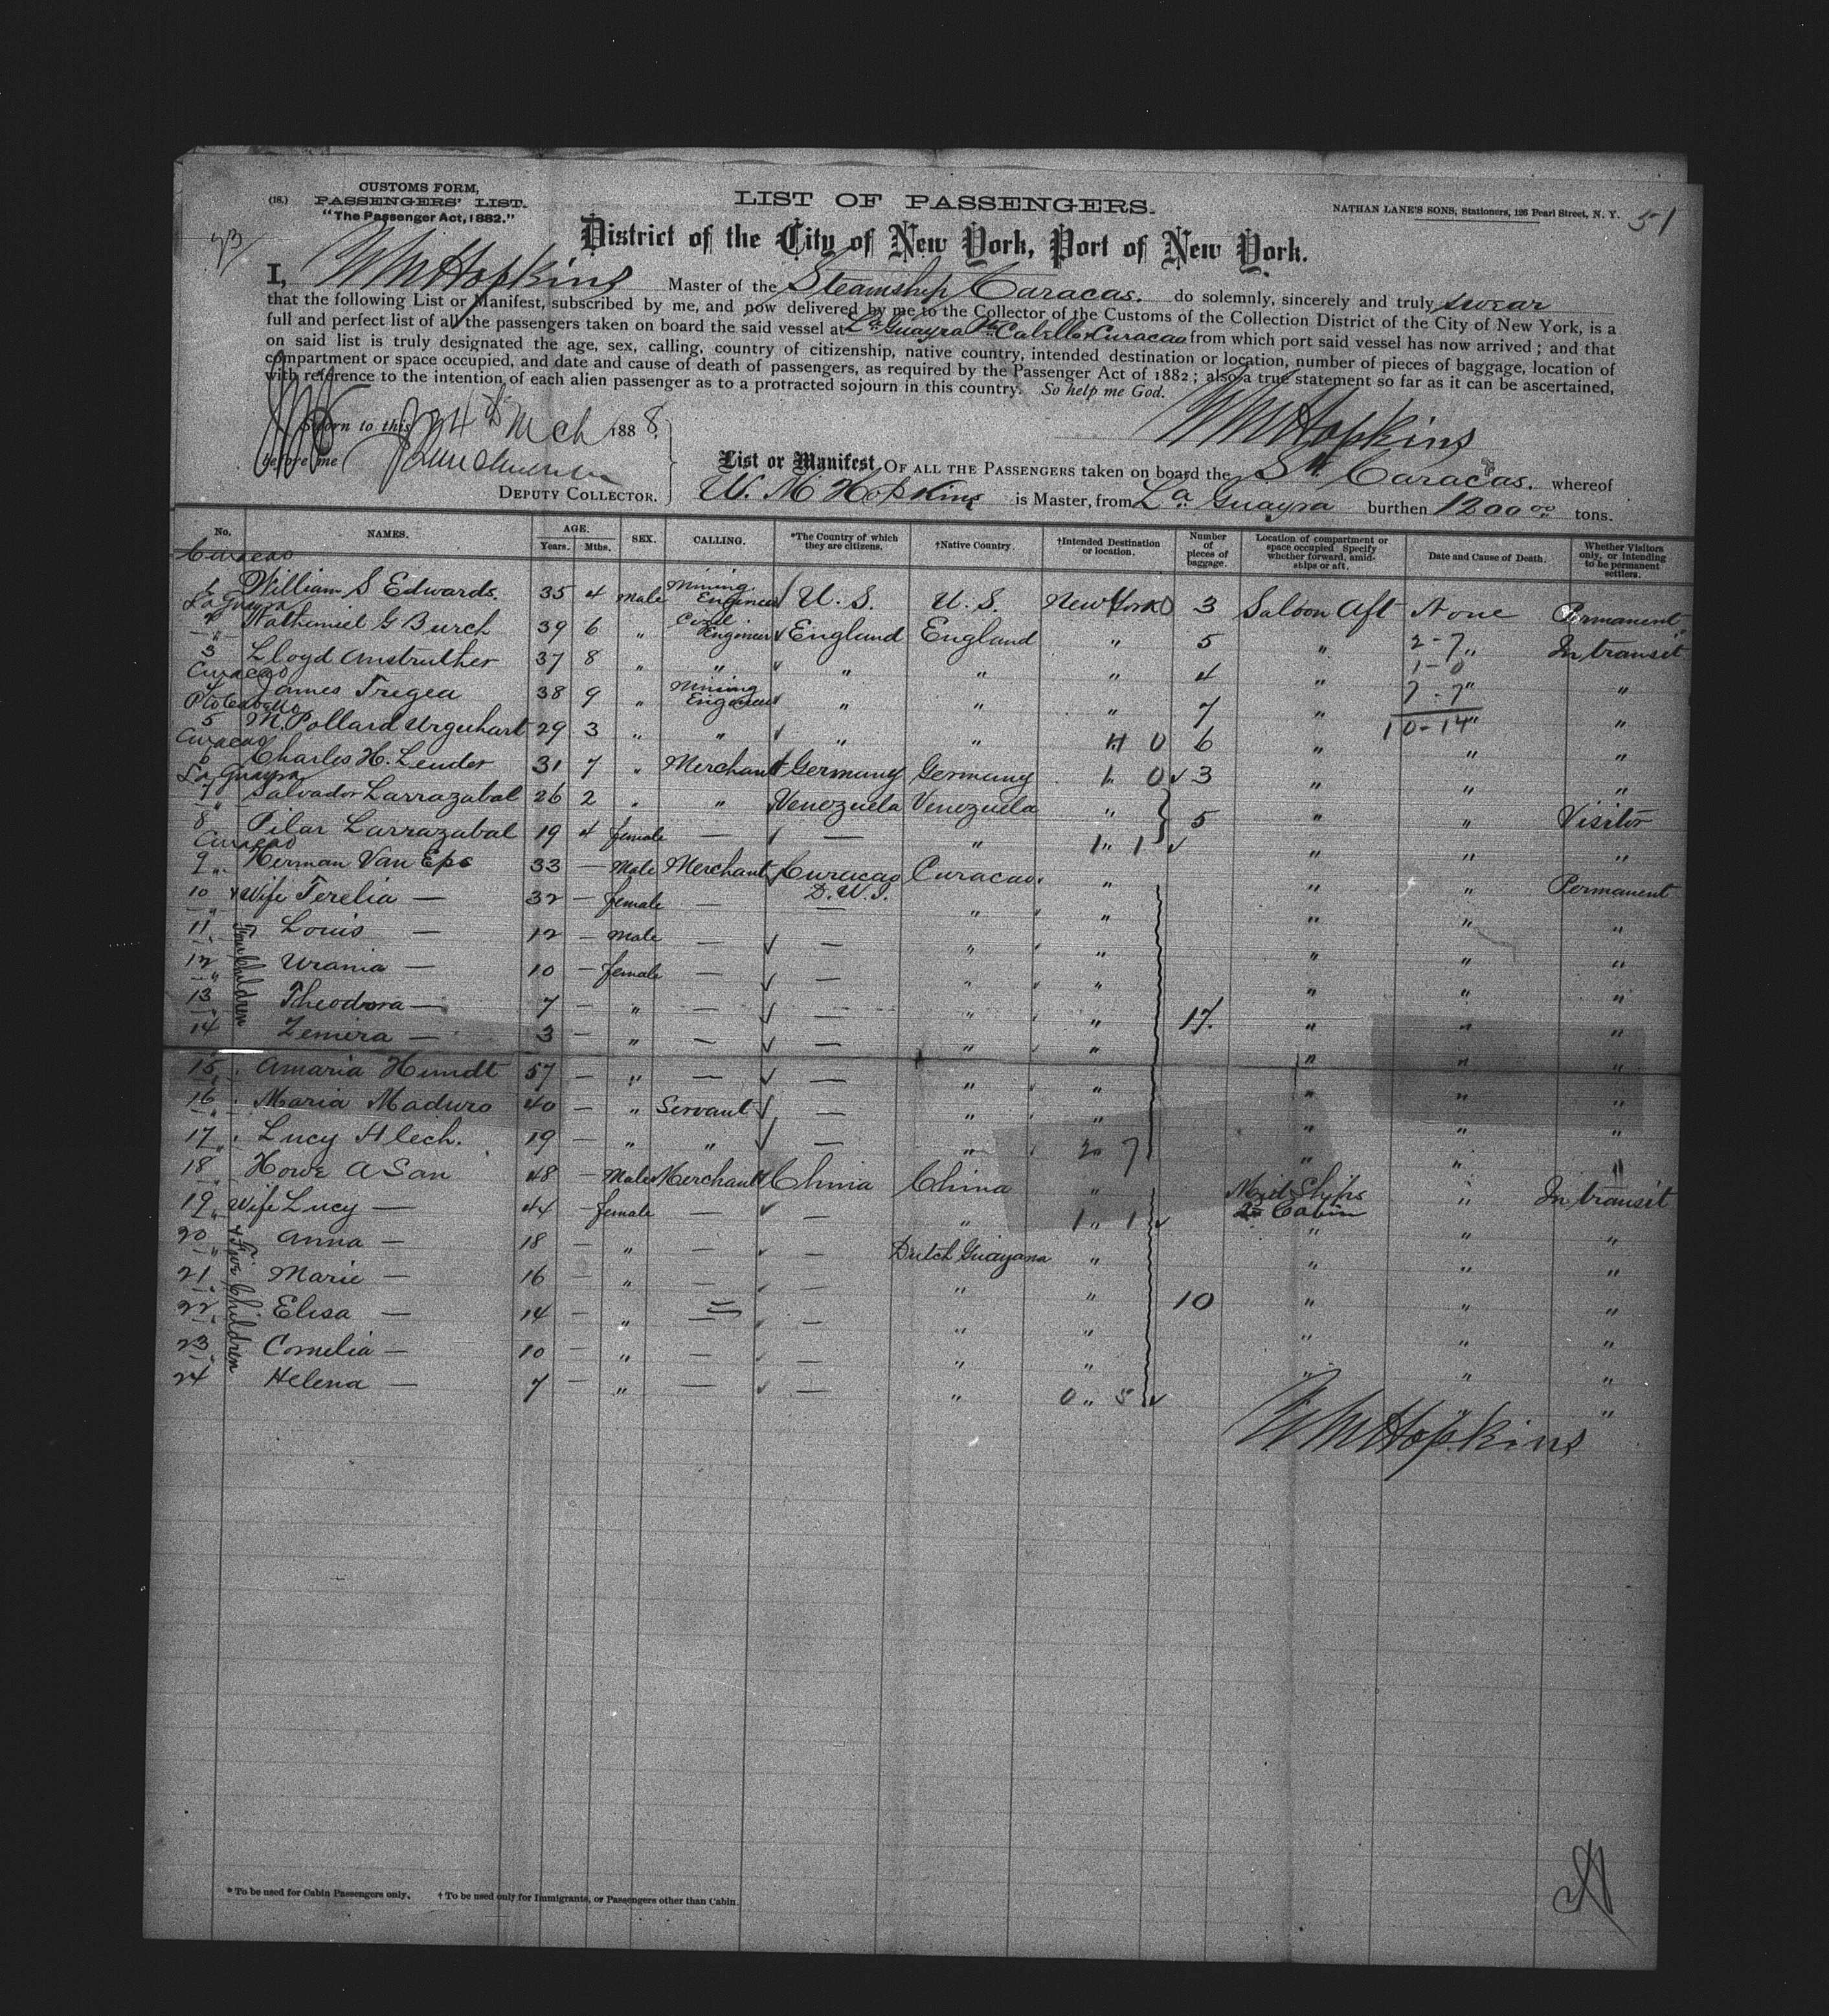 CUSTOMS FORM,
(18.) PASSENGERS' LIST.
"The Passenger Act, 1882."
LIST OF PASSENGERS.
NATHAN LANE'S SONS, Stationers, 126 Pearl Street, N. Y. 51
District of the City of New York, Port of New York.
I, W M Hopkins Master of the Steamship Caracas. do solemnly, sincerely and truly swear
that the following List or Manifest, subscribed by me, and now delivered by me to the Collector of the Customs of the Collection District of the City of New York, is a
full and perfect list of all the passengers taken on board the said vessel at La Guayra Pto Cabello & Curacao from which port said vessel has now arrived; and that
on said list is truly designated the age, sex, calling, country of citizenship, native country, intended destination or location, number of pieces of baggage, location of
compartment or space occupied, and date and cause of death of passengers, as required by the Passenger Act of 1882; also a true statement so far as it can be ascertained,
with reference to the intention of each alien passenger as to a protracted sojourn in this country. So help me God.
W M Hopkins
Sworn to this 24th Mch 1888.
before me
DEPUTY COLLECTOR.
List or Manifest OF ALL THE PASSENGERS taken on board the Str Caracas. whereof
W. M Hopkins is Master, from La Guayra burthen 1200 00 tons.
No. NAMES. AGE. Years. Mths. SEX. CALLING. *The Country of which they are citizens. †Native Country. †Intended Destination or location. Number of pieces of baggage. Location of compartment or space occupied. Specify whether forward, amidships or aft. Date and Cause of Death. Whether Visitors only, or intending to be permanent settlers.
Curacao
1 William S Edwards. 35 4 Male Mining Engineer U. S. U. S. New York 0 3 Saloon Aft None Permanent
La Guayra
2 Nathaniel G Burch 39 6 " Civil Engineer England England " 5 " 2-7 " In transit
"
3 Lloyd Anstruther 37 8 " " " " " 4 " 1-0 "
Curacao
4 James Tregea 38 9 " Mining Engineer " " " 7 " 7-7 " "
Pto Cabello
5 M. Pollard Urquhart 29 3 " " " " 4 0 6 " 10-14 " "
Curacao
6 Charles H. Leuder 31 7 " Merchant Germany Germany 1 " 0 3 " " "
La Guayra
7 Salvador Larrazabal 26 2 " " Venezuela Venezuela " 5 " " Visitor
"
8 Pilar Larrazabal 19 4 female — — " 1 " 1 " " "
Curacao
9 Herman Van Eps 33 — Male Merchant Curacao D. W. I. Curacao. " " " Permanent
10 Wife Terelia — 32 — female — — " " " " "
11 Louis — 12 — Male — — " " " " "
12 Urania — 10 — female — — " " " " "
13 Theodora — 7 — " — — " " 17. " " "
14 Zemira — 3 — " — — " " " " "
Four Children
15 Amaria Hundt 57 — " — — " " " " "
16 Maria Maduro 40 — " Servant — " " " " "
17 Lucy Hlech. 19 — " " — " 2 " 7 " " "
18 Howe A San 48 — Male Merchant China China " Mid Ships 2nd Cabin " In transit
19 Wife Lucy — 44 — female — — " 1 " 1 " " "
20 Anna — 18 — " — — Dutch Guayana " " " "
21 Marie — 16 — " — — " " 10 " " "
22 Elisa — 14 — " — — " " " " "
23 Cornelia — 10 — " — — " " " " "
24 Helena — 7 — " — — " 0 " 5 " "
& Five Children
W M Hopkins
* To be used for Cabin Passengers only. † To be used only for Immigrants, or Passengers other than Cabin.